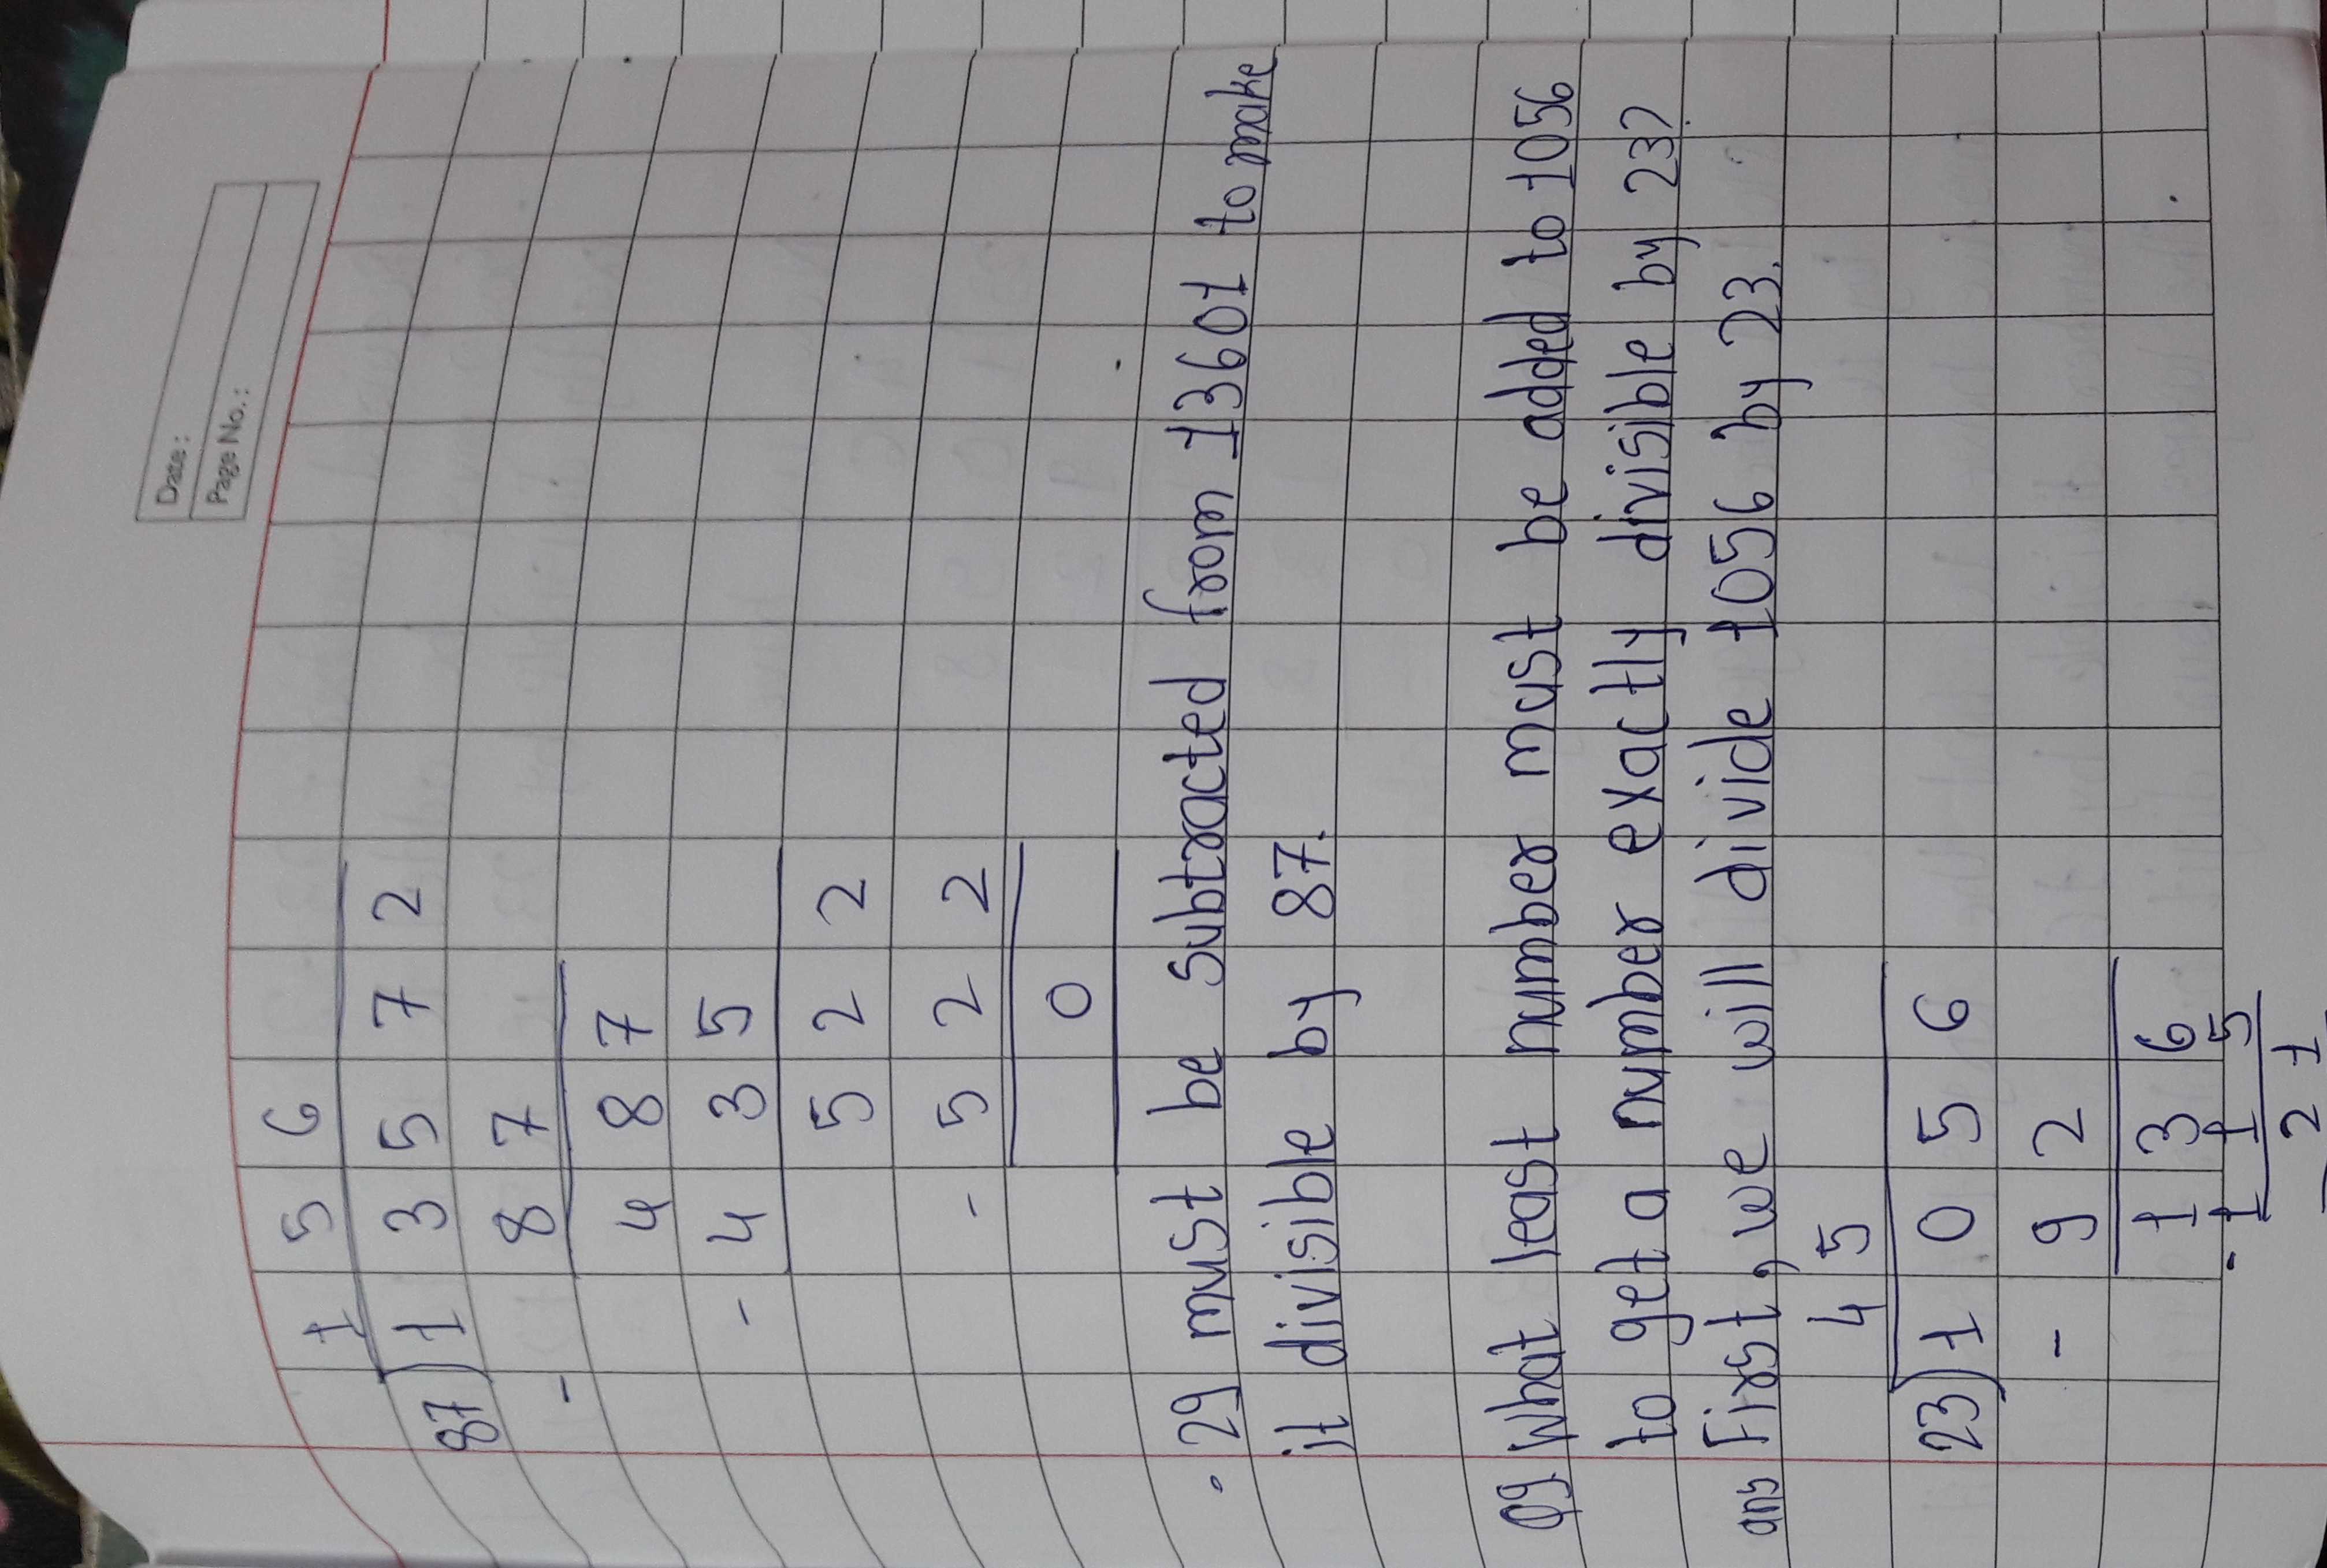 Date:
Page No.:
1 5 6
87)1 3 5 7 2
- 8 7
4 8 7
- 4 3 5
5 2 2
- 5 2 2
0
. 29 must be subtracted from 13601 to make
it divisible by 87.
Q9. What least number must be added to 1056
to get a number exactly divisible by 23?
ans First, we will divide 1056 by 23.
4 5
23)1 0 5 6
- 9 2
1 3 6
- 1 1 5
2 1